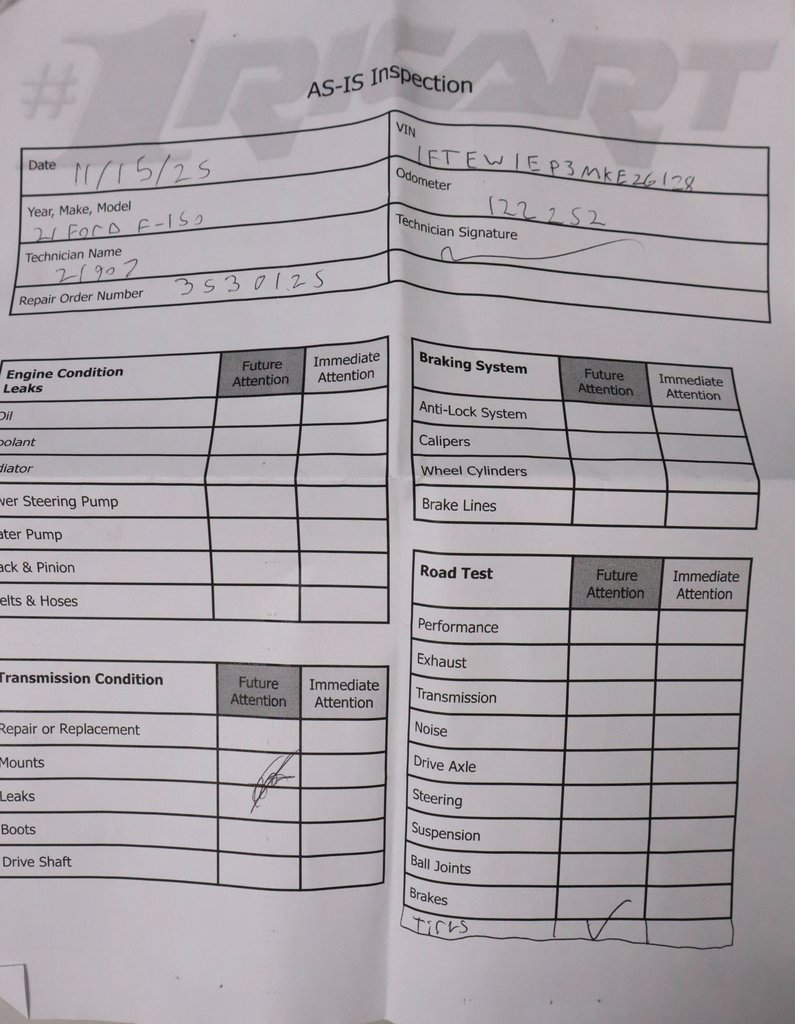 #1 RICART
AS-IS Inspection
Date 11/15/25
VIN 1FTEW1EP3MKE26128
Year, Make, Model 21 FORD F-150
Odometer 122252
Technician Name 21907
Technician Signature
Repair Order Number 3530125
Engine Condition Leaks Future Attention Immediate Attention
Oil
oolant
diator
wer Steering Pump
ater Pump
ack & Pinion
elts & Hoses
Transmission Condition Future Attention Immediate Attention
Repair or Replacement
Mounts
Leaks
Boots
Drive Shaft
Braking System Future Attention Immediate Attention
Anti-Lock System
Calipers
Wheel Cylinders
Brake Lines
Road Test Future Attention Immediate Attention
Performance
Exhaust
Transmission
Noise
Drive Axle
Steering
Suspension
Ball Joints
Brakes
Tires ✓